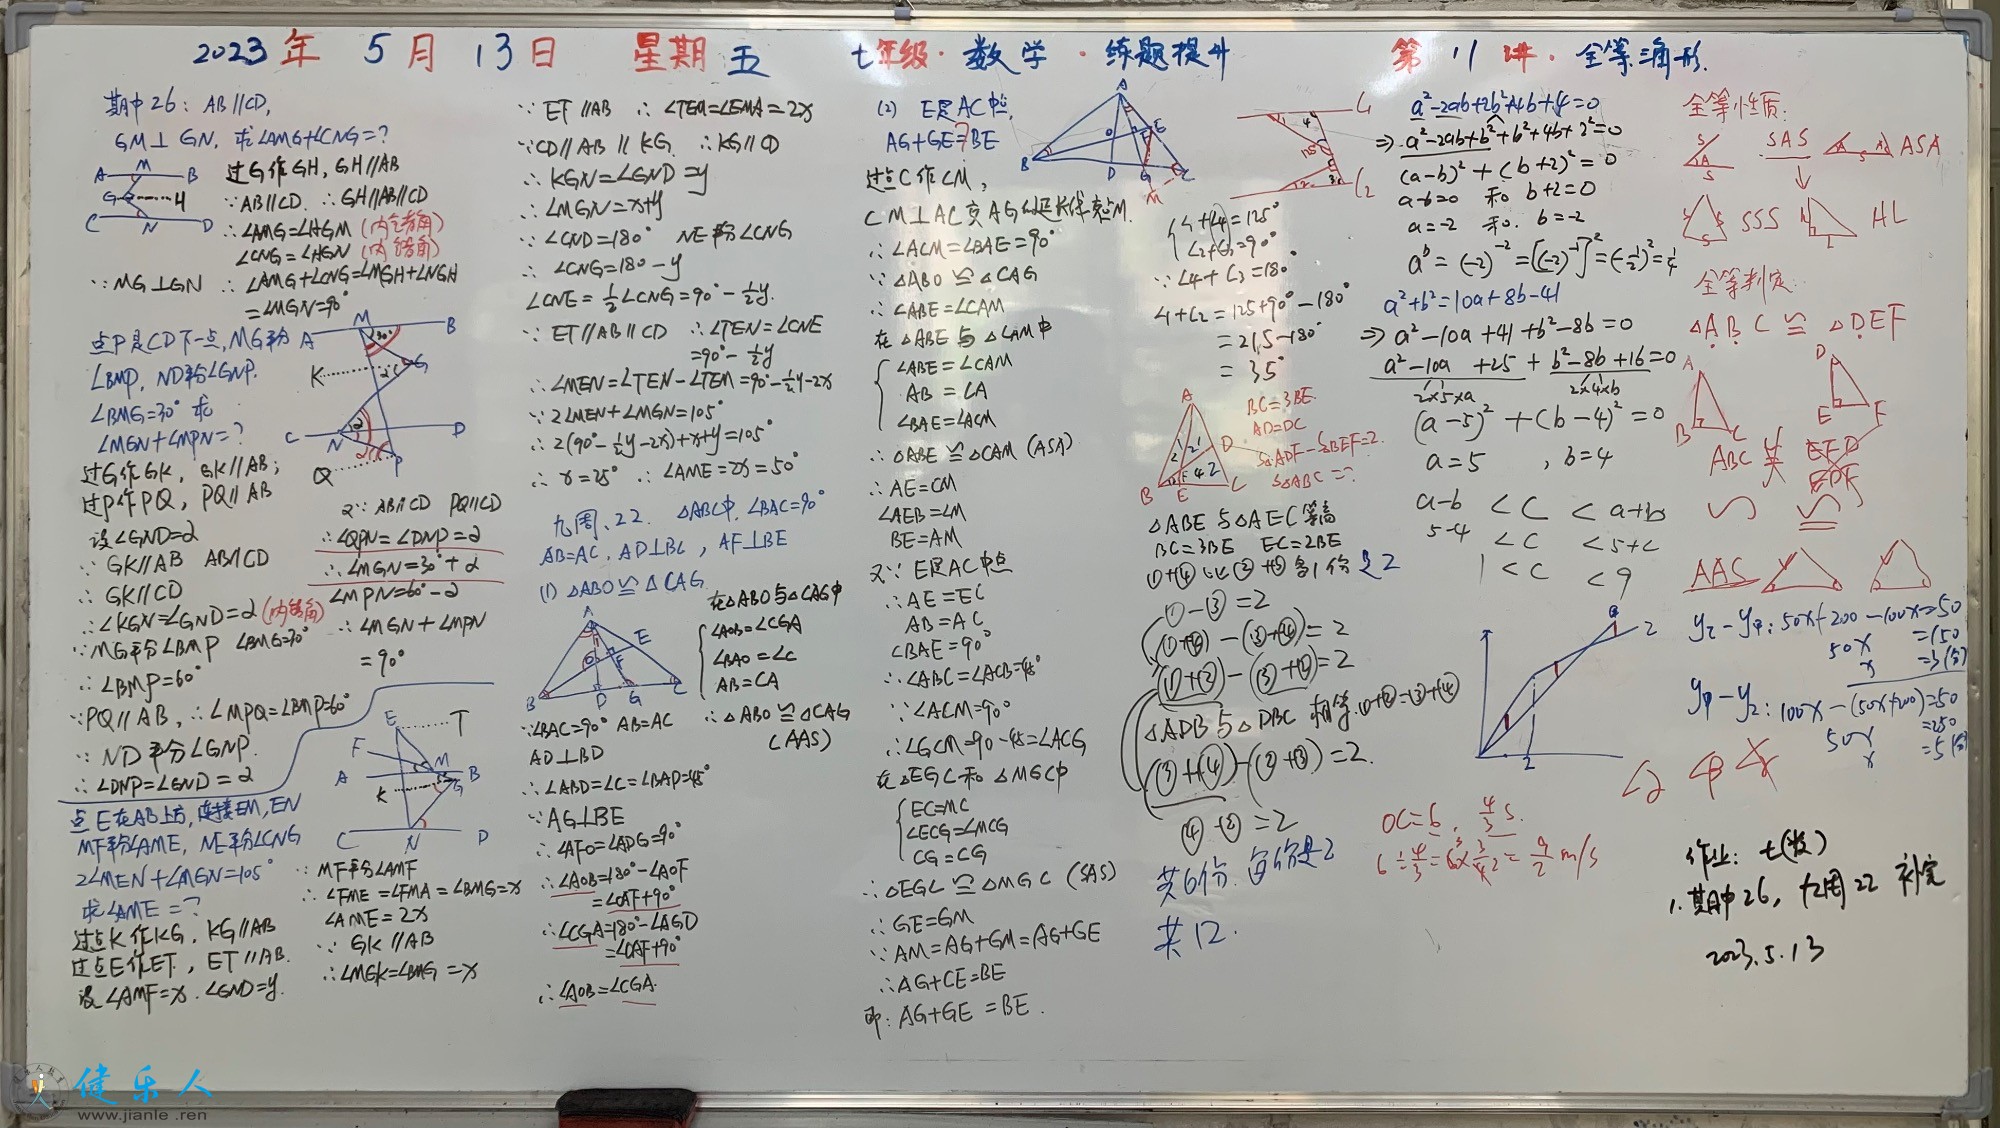 2023年 5月 13日 星期五 七年级·数学·练题提升 第11讲·全等三角形
期中26: AB∥CD,
GM⊥GN, 求∠AMG+∠CNG=?
A M B
G H
C N D
过G作GH, GH∥AB
∵AB∥CD ∴GH∥AB∥CD
∴∠AMG=∠HGM (内错角)
∠CNG=∠HGN (内错角)
∵MG⊥GN ∴∠AMG+∠CNG=∠MGH+∠NGH
=∠MGN=90°
点P是CD下一点, MG平分
∠BMP, ND平分∠GNP.
∠BMG=30° 求
∠MGN+∠MPN=?
A M B
30°
K G
C N D
Q P
过G作GK, GK∥AB;
过P作PQ, PQ∥AB
设∠GND=α
∵GK∥AB AB∥CD
∴GK∥CD
∴∠KGN=∠GND=α (内错角)
∵MG平分∠BMP ∠BMG=30°
∴∠BMP=60°
∵PQ∥AB, ∴∠MPQ=∠BMP=60°
∵ND平分∠GNP.
∴∠DNP=∠GND=α
又∵AB∥CD PQ∥CD
∴∠QPN=∠DNP=α
∴∠MGN=30°+α
∠MPN=60°-α
∴∠MGN+∠MPN
=90°
点E在AB上方, 连接EM, EN
MF平分∠AME, NE平分∠CNG
2∠MEN+∠MGN=105°
求∠AME=?
过点K作KG, KG∥AB
过点E作ET, ET∥AB.
设∠AMF=x. ∠GND=y.
E T
F M
A B
K G
C N D
∵MF平分∠AMF
∴∠FME=∠FMA=∠BMG=x
∠AME=2x
∵GK∥AB
∴∠MGK=∠BMG=x
∵ET∥AB ∴∠TEM=∠EMA=2x
∵CD∥AB∥KG ∴KG∥CD
∴KGN=∠GND=y
∴∠MGN=x+y
∵∠CND=180° NE平分∠CNG
∴∠CNG=180-y
∠CNE=½∠CNG=90°-½y.
∵ET∥AB∥CD ∴∠TEN=∠CNE
=90°-½y
∴∠MEN=∠TEN-∠TEM=90°-½y-2x
∵2∠MEN+∠MGN=105°
∴2(90°-½y-2x)+x+y=105°
∴x=25° ∴∠AME=2x=50°
九周.22. △ABC中, ∠BAC=90°
AB=AC, AD⊥BC, AF⊥BE
(1) △ABO≌△CAG
A
O F E
B D G C
在△ABO与△CAG中
∠AOB=∠CGA
∠BAO=∠C
AB=CA
∴△ABO≌△CAG
(AAS)
∵∠BAC=90° AB=AC
AD⊥BD
∴∠ABD=∠C=∠BAD=45°
∵AG⊥BE
∴∠AFO=∠ADG=90°
∴∠AOB=180°-∠AOF
=∠OAF+90°
∴∠CGA=180°-∠AGD
=∠OAF+90°
∴∠AOB=∠CGA.
(2) E是AC中点,
AG+GE=BE
?
A
O F E
B D G C
M
过点C作CM,
CM⊥AC交AG的延长线点M.
∴∠ACM=∠BAE=90°
∵△ABO≌△CAG
∴∠ABE=∠CAM
在△ABE与△CAM中
∠ABE=∠CAM
AB=CA
∠BAE=∠ACM
∴△ABE≌△CAM (ASA)
∴AE=CM
∠AEB=∠M
BE=AM
又∵E是AC中点
∴AE=EC
AB=AC
∠BAE=90°
∴∠ABC=∠ACB=45°
∵∠ACM=90°
∴∠GCM=90-45=∠ACG
在△EGC和△MGC中
EC=MC
∠ECG=∠MCG
CG=CG
∴△EGC≌△MGC (SAS)
∴GE=GM
∵AM=AG+GM=AG+GE
∴AG+CE=BE
即: AG+GE=BE.
L1
L2
∠1+∠4=125°
∠2+∠3=90°
∵∠4+∠3=180°
∠1+∠2=125+90°-180°
=215-180°
=35°
A
B E C D F
BC=3BE.
AD=DC
S△ADF-S△BEF=2.
S△ABC=?
△ABE与△AEC等高
BC=3BE EC=2BE
①-③=2
(①+②)-(③+②)=2
△ADB与△DBC相等.
共6份. 每份是2
共12.
a²-2ab+2b²+4b+4=0
⇒a²-2ab+b²+b²+4b+2²=0
(a-b)²+(b+2)²=0
a-b=0 和 b+2=0
a=-2 和. b=-2
a^b=(-2)⁻²=[(-2)⁻¹]²=(-½)²=¼
a²+b²=10a+8b-41
⇒a²-10a+41+b²-8b=0
a²-10a+25+b²-8b+16=0
2×5×a 2×4×b
(a-5)²+(b-4)²=0
a=5, b=4
a-b<C<a+b
5-4<C<5+4
1<C<9
2
OC=6. 4/3 s.
6÷4/3=6×3/4=9/2 m/s
全等性质:
SAS ASA
SSS HL
全等判定:
△ABC≌△DEF
A D
B C E F
ABC EFD
EDF
∽ ≌
AAS
y乙-y甲: 50x+200-100x=50
50x =150
x =3(分)
y甲-y乙: 100x-(50x+200)=50
50x =250
x =5(分)
作业: 七(发)
1. 期中26, 七周22 补完
2023.5.13
健乐人
www.jianle.ren